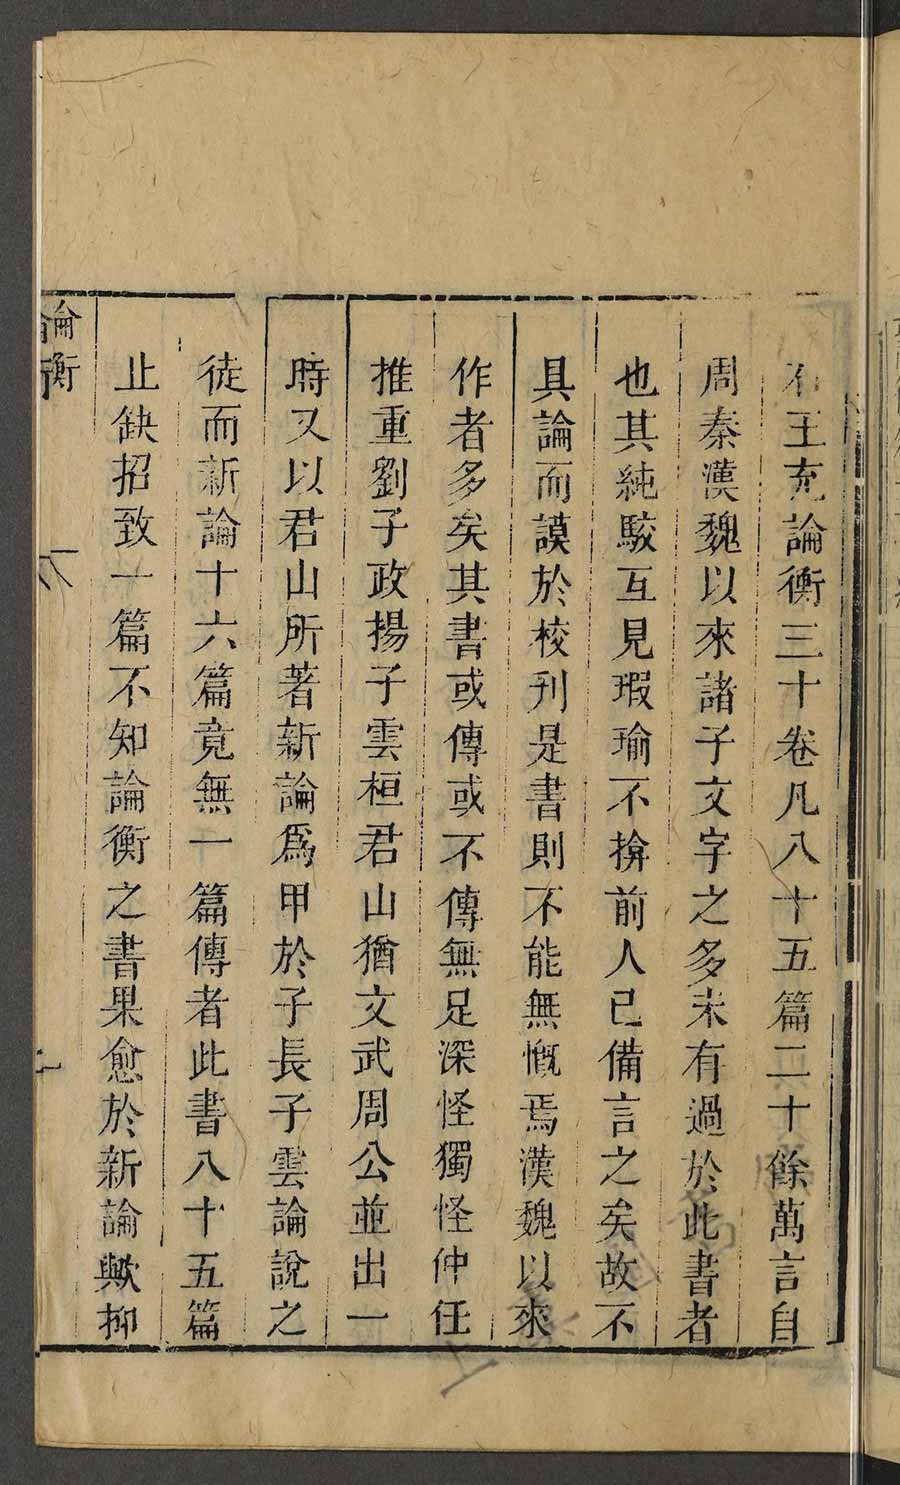 右王充論衡三十卷凡八十五篇二十餘萬言自
周秦漢魏以來諸子文字之多未有過於此書者
也其純駁互見瑕瑜不揜前人已備言之矣故不
具論而謨於校刋是書則不能無慨焉漢魏以來
作者多矣其書或傳或不傳無足深怪獨怪仲任
推重劉子政揚子雲桓君山猶文武周公並出一
時又以君山所著新論爲甲於子長子雲論說之
徒而新論十六篇竟無一篇傳者此書八十五篇
止缺招致一篇不知論衡之書果愈於新論歟抑
論衡